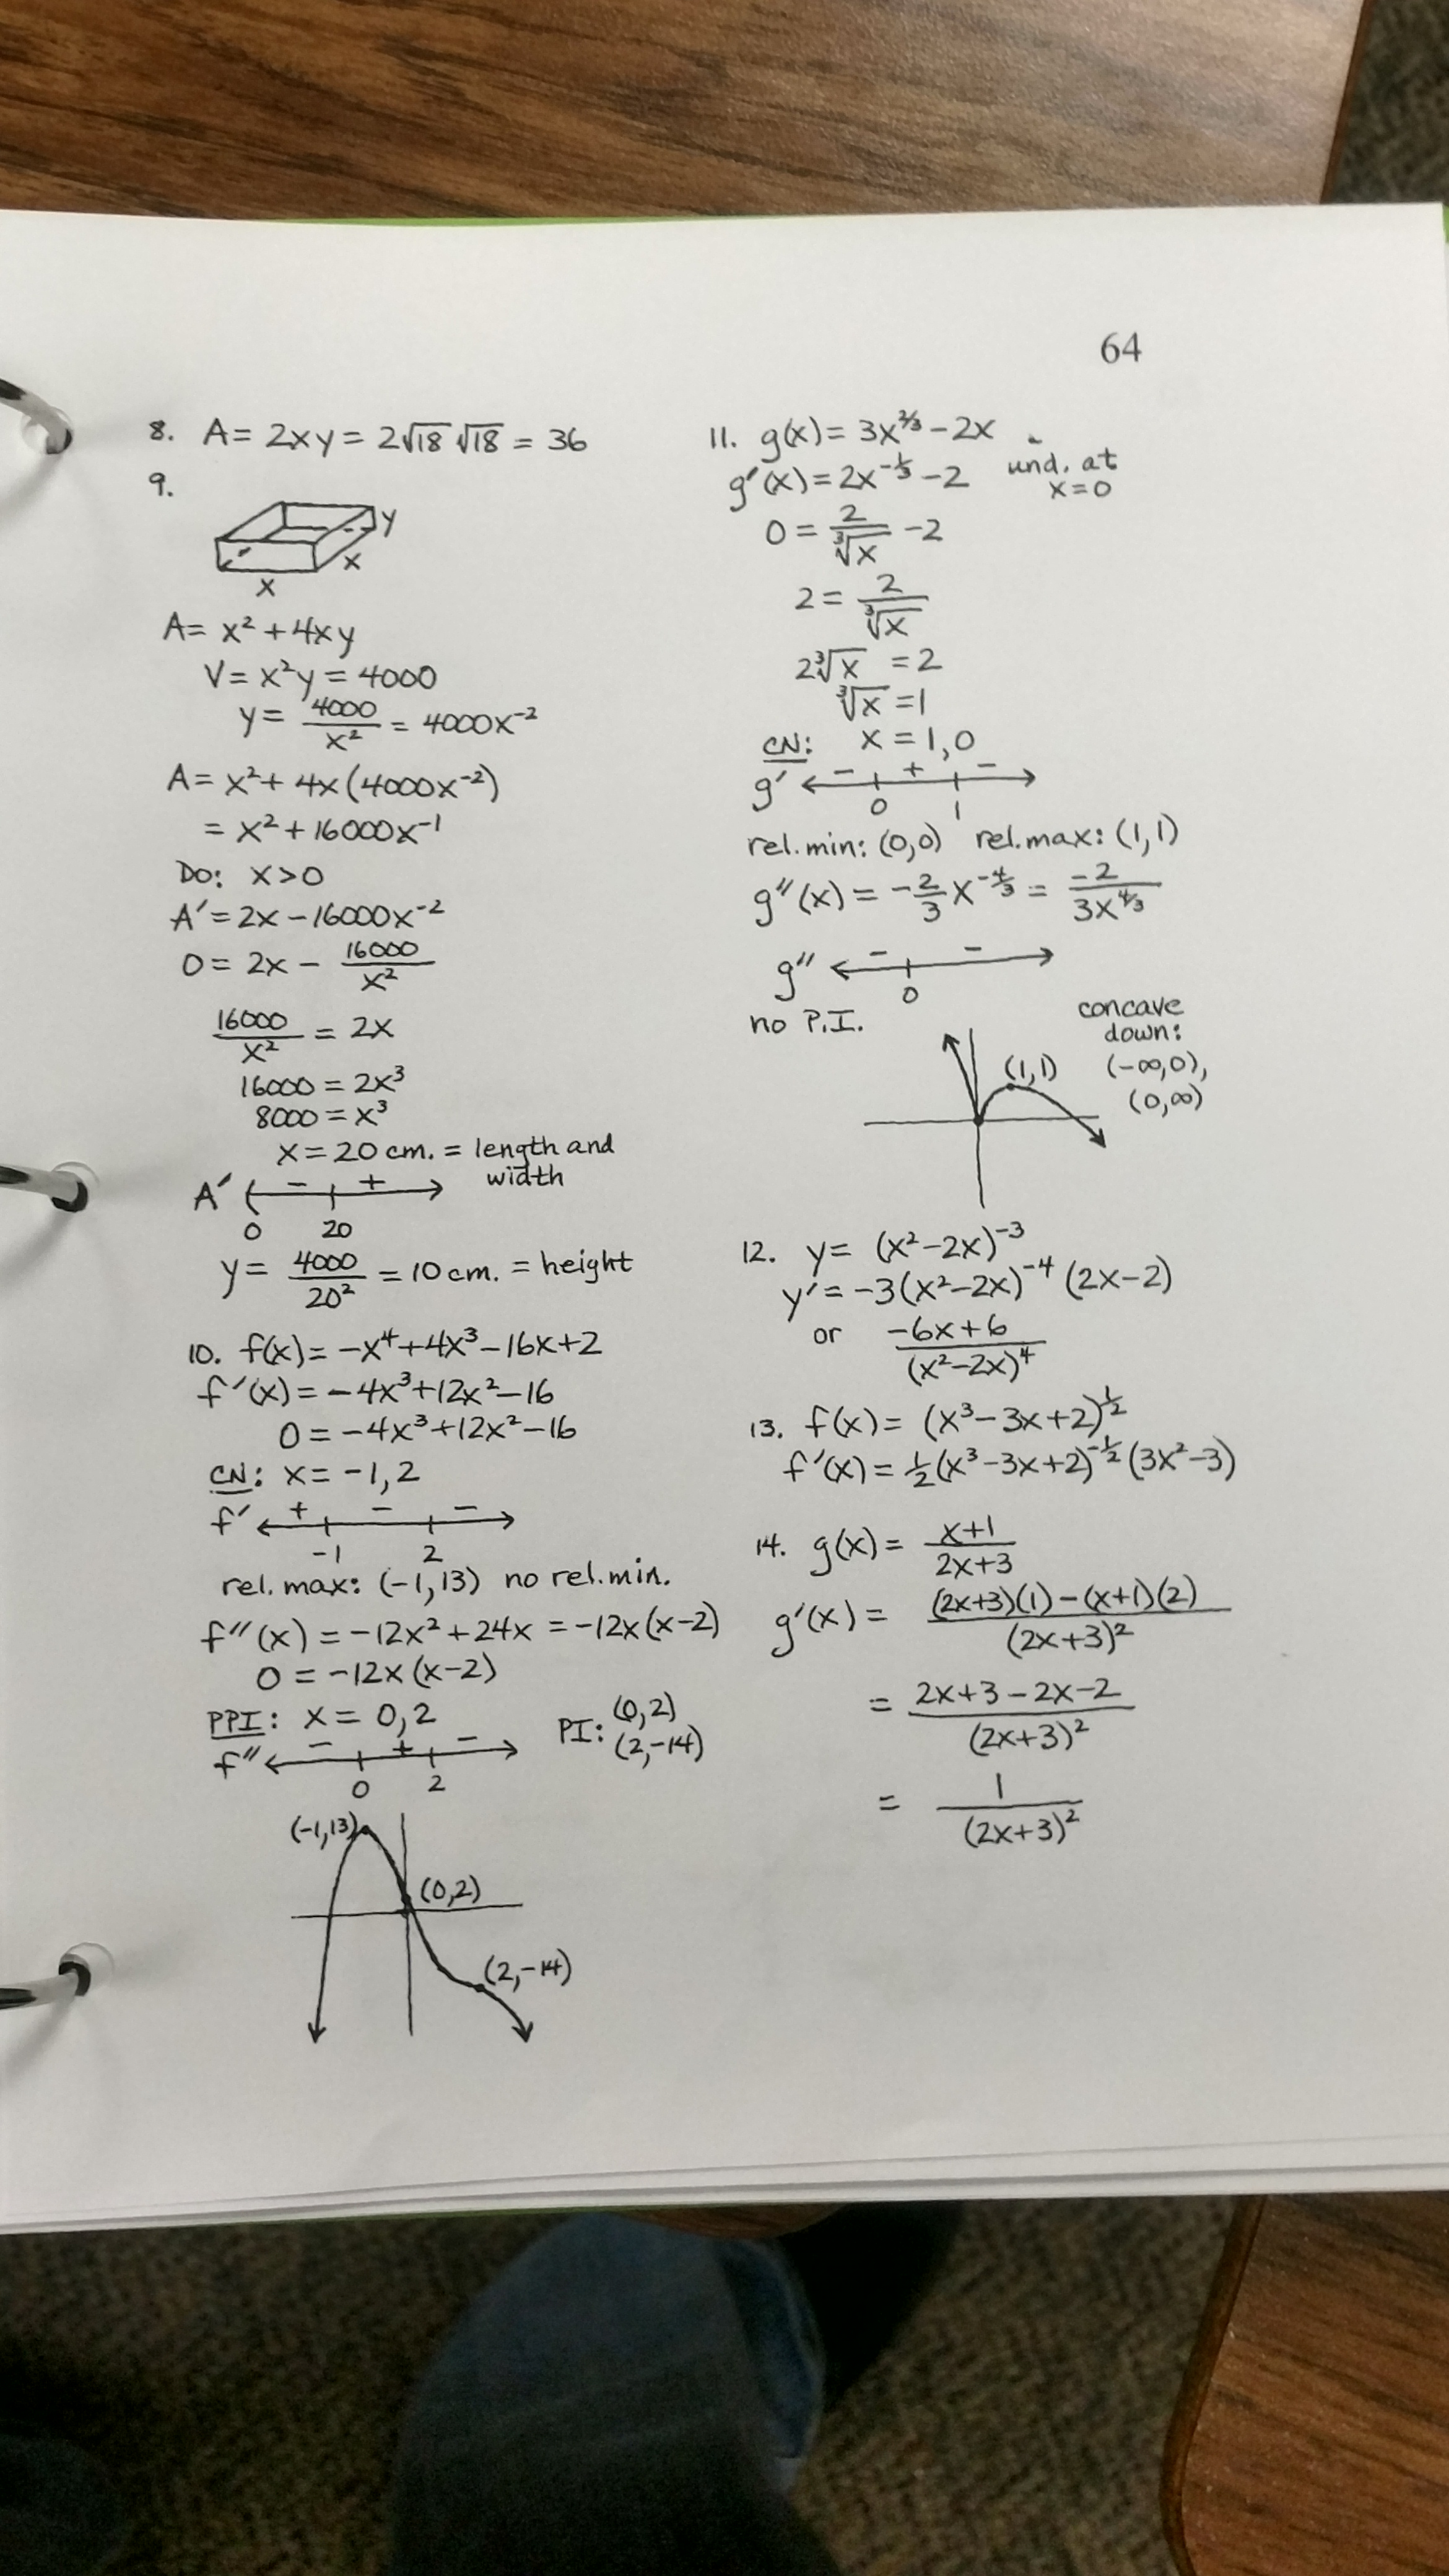 64
8. A = 2xy = 2√18 √18 = 36
9.
y
x
x
A = x² + 4xy
V = x²y = 4000
y = 4000/x² = 4000x⁻²
A = x² + 4x(4000x⁻²)
= x² + 16000x⁻¹
DO: x > 0
A′ = 2x − 16000x⁻²
0 = 2x − 16000/x²
16000/x² = 2x
16000 = 2x³
8000 = x³
x = 20 cm. = length and
width
A′ − +
0 20
y = 4000/20² = 10 cm. = height
10. f(x) = −x⁴ + 4x³ − 16x + 2
f′(x) = −4x³ + 12x² − 16
0 = −4x³ + 12x² − 16
CN: x = −1, 2
f′ + − −
−1 2
rel. max: (−1, 13) no rel. min.
f″(x) = −12x² + 24x = −12x(x−2)
0 = −12x(x−2)
PPI: x = 0, 2
f″ − + −
0 2
PI: (0, 2)
(2, −14)
(−1, 13)
(0, 2)
(2, −14)
11. g(x) = 3x^(2/3) − 2x
g′(x) = 2x^(−1/3) − 2 und. at
x = 0
0 = 2/∛x − 2
2 = 2/∛x
2∛x = 2
∛x = 1
CN: x = 1, 0
g′ − + −
0 1
rel. min: (0,0) rel. max: (1,1)
g″(x) = −2/3 x^(−4/3) = −2/(3x^(4/3))
g″ − −
0
no P.I.
concave
down:
(−∞, 0),
(0, ∞)
(1,1)
12. y = (x² − 2x)⁻³
y′ = −3(x² − 2x)⁻⁴ (2x − 2)
or (−6x + 6)/(x² − 2x)⁴
13. f(x) = (x³ − 3x + 2)^(1/2)
f′(x) = 1/2 (x³ − 3x + 2)^(−1/2) (3x² − 3)
14. g(x) = (x+1)/(2x+3)
g′(x) = ((2x+3)(1) − (x+1)(2))/(2x+3)²
= (2x + 3 − 2x − 2)/(2x+3)²
= 1/(2x+3)²